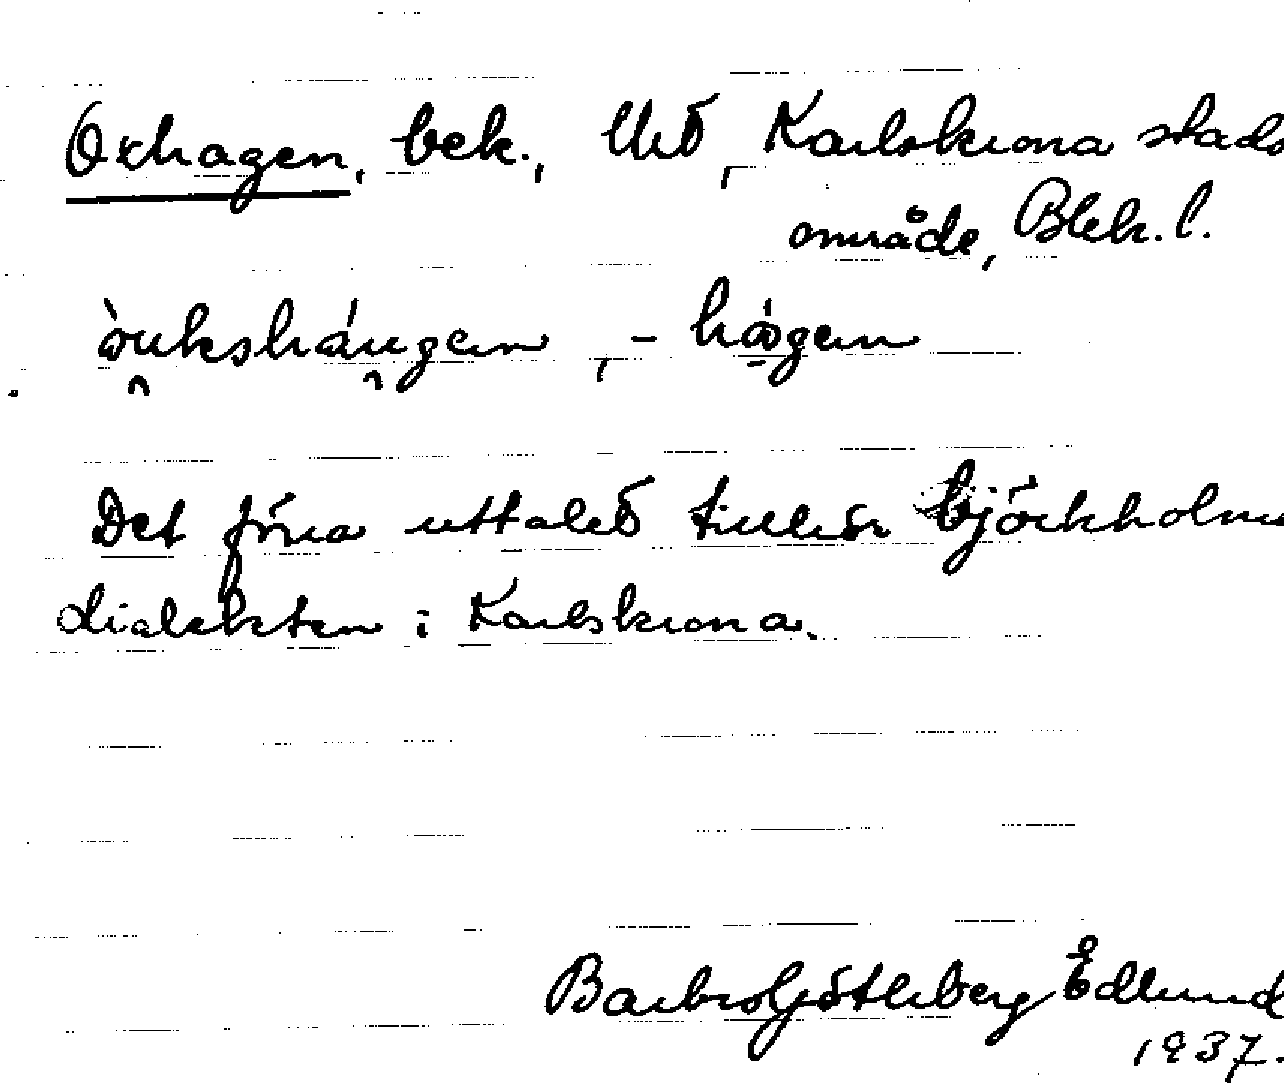 Oxhagen, bek., Karlskrona stads
område, Blek. l.
òuksháugen, - hågen
Det förra uttalet tillhör björkholms
dialekten i Karlskrona.
Barbro Götleberg Edlund
1937.